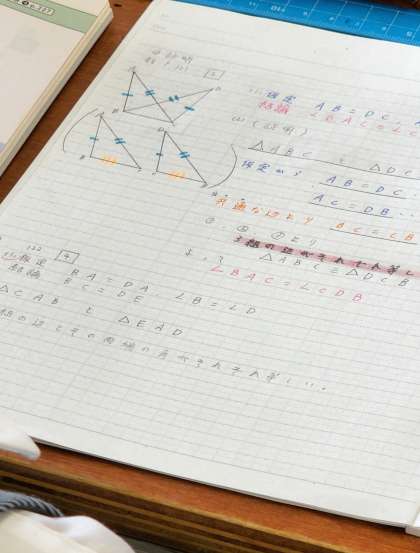 (1) 仮定 AB = DC,
結論 ∠BAC = ∠
(2) (証明)
△ABC と △DC
仮定から、AB = DC
AC = DB
共通な辺より BC = CB
①、②、③より
3組の辺がそれぞれ等し
△ABC ≡ △DCB
∠BAC = ∠CDB
122 4
(1) 仮定 BA = DA, ∠B = ∠D
結論 BC = DE
△CAB と △EAD
組の辺とその両端の角がそれぞれ等しい。